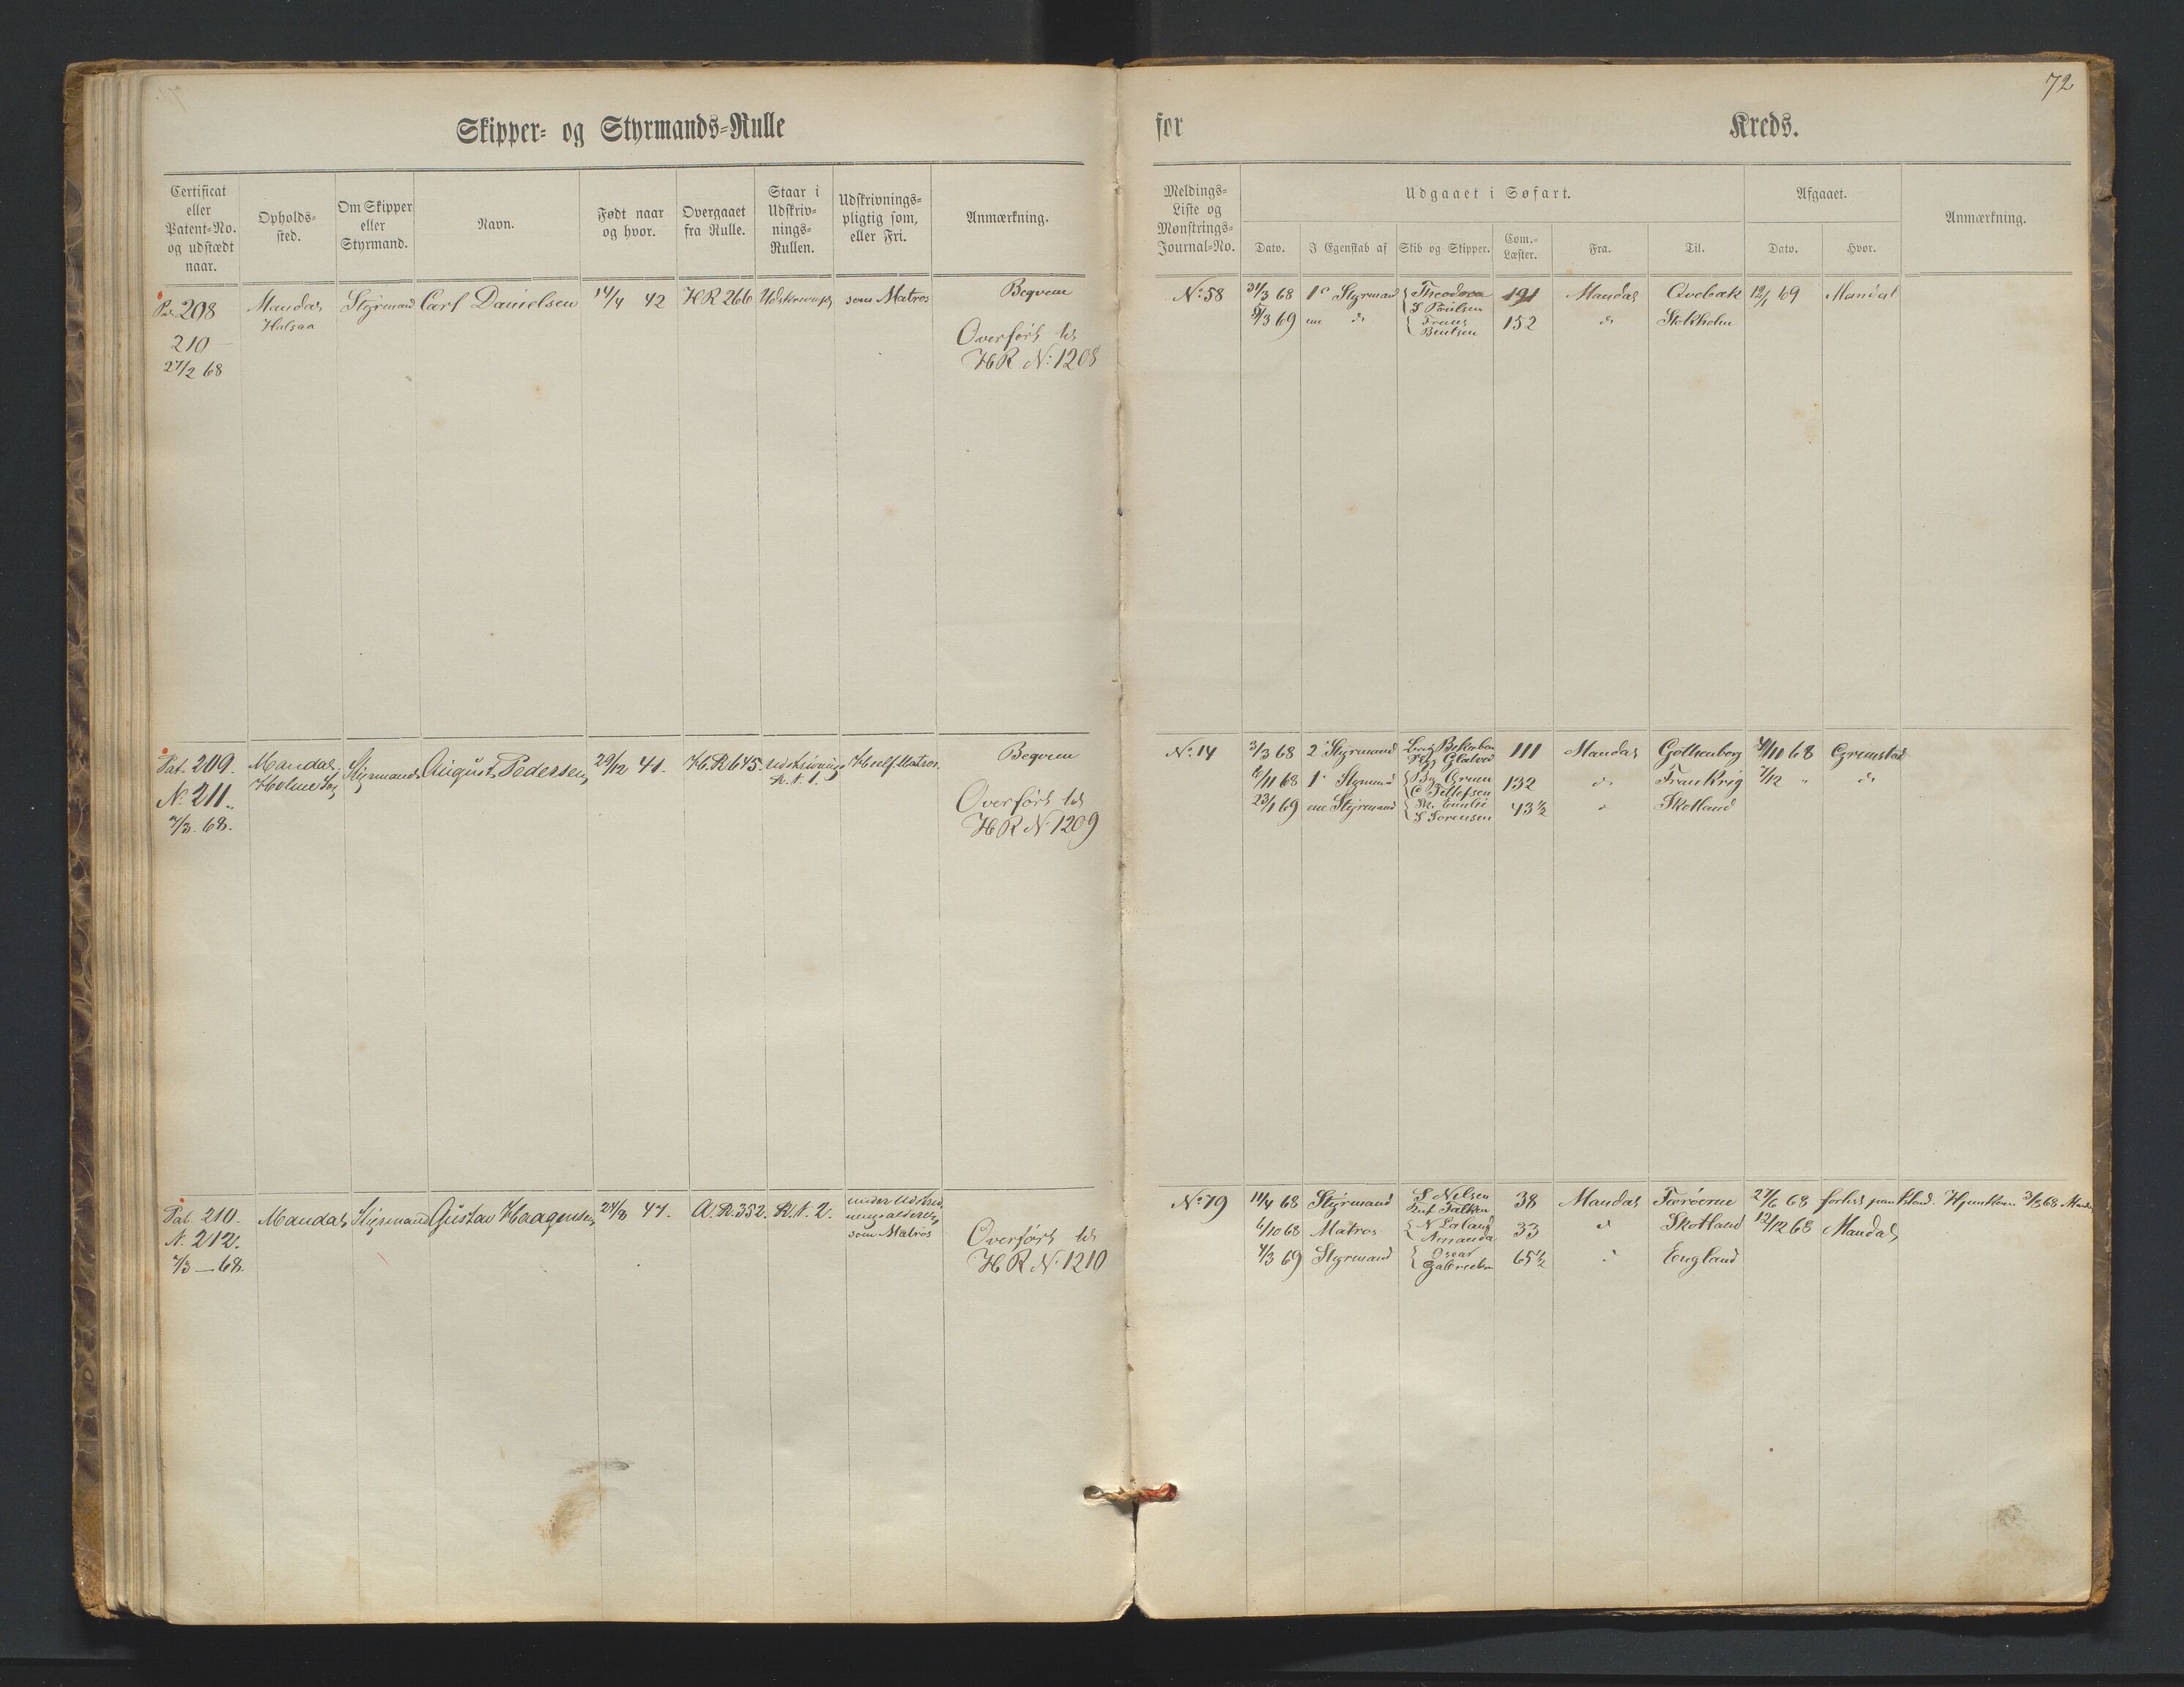 72
Skipper- og Styrmands-Rulle
for Kreds.
Certificat eller Patent-No. og udstædt naar.
Opholds-sted.
Om Skipper eller Styrmand.
Navn.
Født naar og hvor.
Overgaaet fra Rulle.
Staar i Udskriv-nings-Rullen.
Udskrivnings-pligtig som, eller Fri.
Anmærkning.
Meldings-Liste og Mønstrings-Journal-No.
Udgaaet i Søfart.
Dato.
I Egenskab af
Skib og Skipper.
Com.-Læster.
Fra.
Til.
Afgaaet.
Dato.
Hvor.
Anmærkning.
208 Mandal Styrmand Carl Danielsen 14/4 42 HR 266 som Matros Beqvem
Halsaa
210 -
27/2 68
Overført til
HR No: 1208
No: 58 31/3 68 1e Styrmand Theodora 191 Mandal Qvebek 12/1 69 Mandal
5/3 69 ene do Frans Bentsen 152 do Stokholm
Pat. 209. Mandal Styrmand August Pedersen 29/12 41. HR 645 Udskrivnings Matros Beqvem
Holme Sog R. N. 1.
No 211.
7/3. 68.
Overført til
HR No 1209
No: 14 3/3 68 2 Styrmand 111 Mandal Gothenborg 68 Grimstad
11 68 1 Styrmand Grum 132 do Frankrig 7/12 " do
C Tellefsen
23/1 69 ene Styrmand Emilie 43 1/2 Skotland
S Sørensen
Pat. 210. Mandal Styrmand Gustav Haagensen 24/8 47. A.R. 352. R. N. 2. under Udskriv
ningsalderen
som Matros
N. 212.
7/3 - 68.
Overført til
HR No 1210
No: 79 11/4 68 Styrmand S Nelsen 38 Mandal Færøerne 27/6 68 forlist
Falken
6/10 68 Matros 33 Skotland 12/12 68 Mandal
Amanda
4/3 69 Styrmand Oscar 65 1/2 England